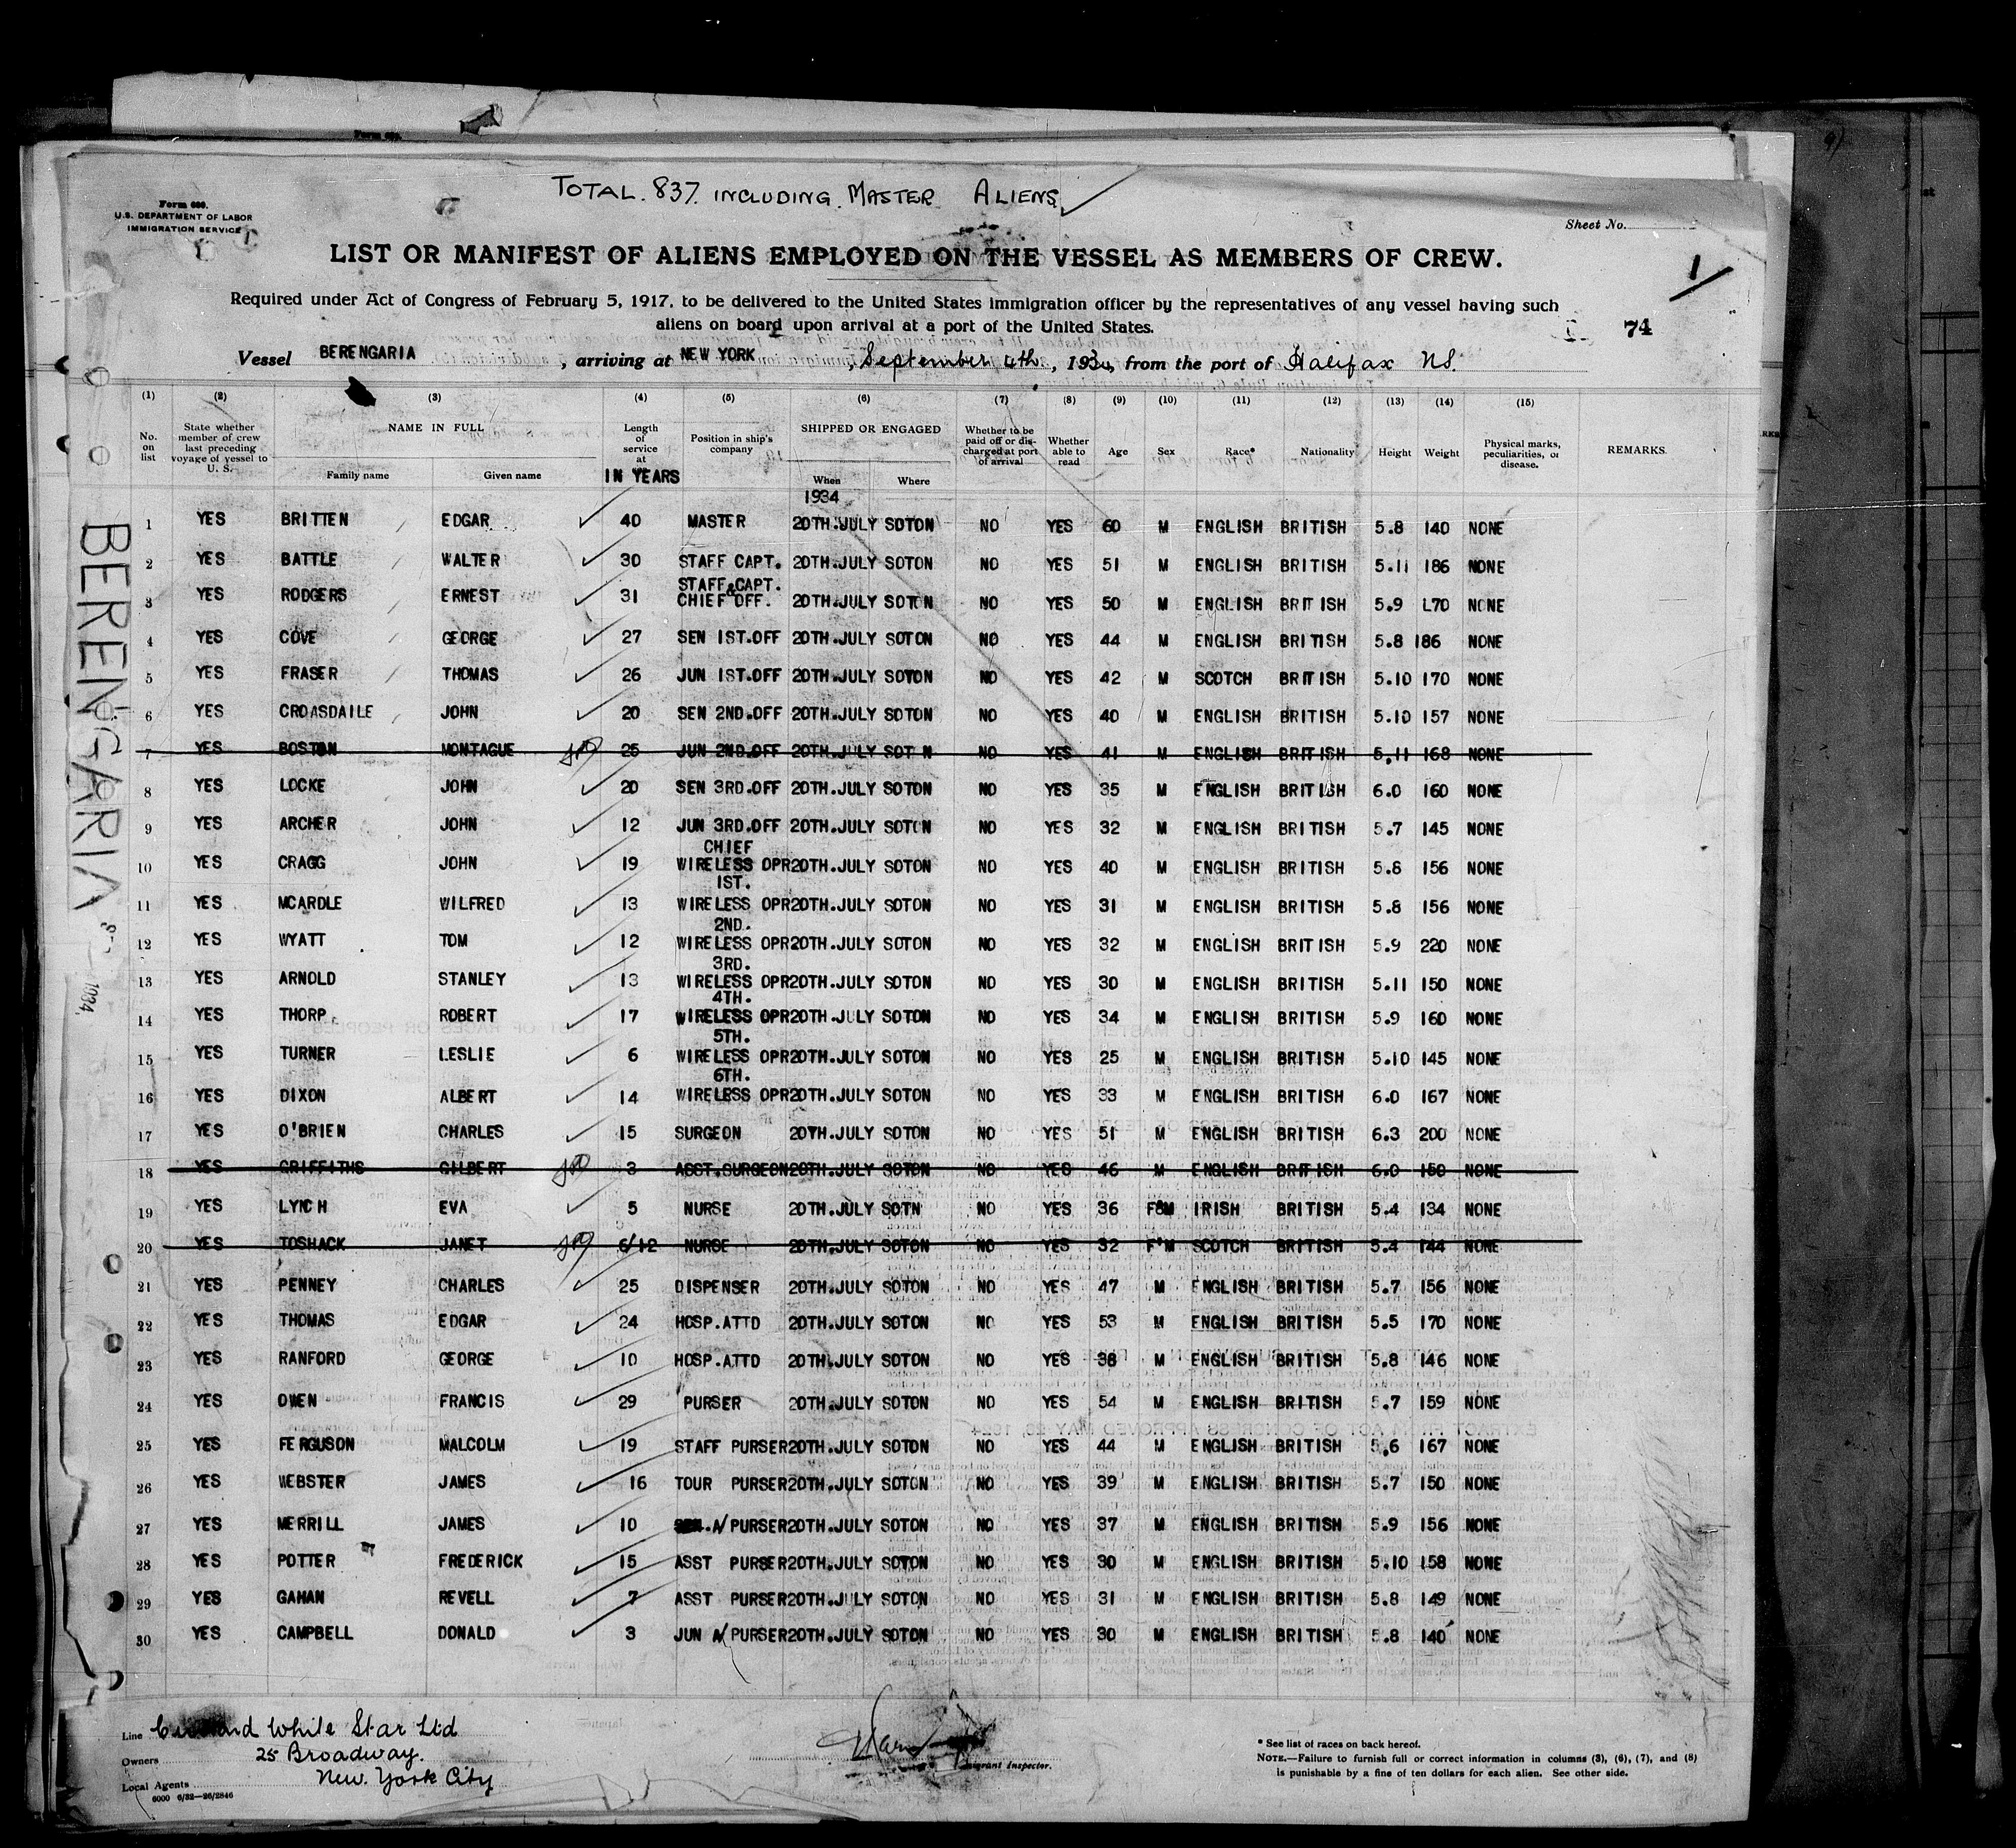 TOTAL. 837. INCLUDING. MASTER ALIENS
Form 680.
U.S. DEPARTMENT OF LABOR
IMMIGRATION SERVICE
Sheet No.
LIST OR MANIFEST OF ALIENS EMPLOYED ON THE VESSEL AS MEMBERS OF CREW.
1
Required under Act of Congress of February 5, 1917, to be delivered to the United States immigration officer by the representatives of any vessel having such
aliens on board upon arrival at a port of the United States.
74
Vessel BERENGARIA, arriving at NEW YORK, September 4th, 1934, from the port of Halifax NS.
(1) (2) (3) (4) (5) (6) (7) (8) (9) (10) (11) (12) (13) (14) (15)
No. on list State whether member of crew last preceding voyage of vessel to U. S. NAME IN FULL Family name Given name Length of service at IN YEARS Position in ship's company SHIPPED OR ENGAGED When Where Whether to be paid off or discharged at port of arrival Whether able to read Age Sex Race* Nationality Height Weight Physical marks, peculiarities, or disease. REMARKS.
1934
1 YES BRITTEN EDGAR 40 MASTER 20TH.JULY SOTON NO YES 60 M ENGLISH BRITISH 5.8 140 NONE
2 YES BATTLE WALTER 30 STAFF CAPT. 20TH.JULY SOTON NO YES 51 M ENGLISH BRITISH 5.11 186 NONE
3 YES RODGERS ERNEST 31 STAFF CAPT. & CHIEF OFF. 20TH.JULY SOTON NO YES 50 M ENGLISH BRITISH 5.9 L70 NONE
4 YES COVE GEORGE 27 SEN 1ST.OFF 20TH.JULY SOTON NO YES 44 M ENGLISH BRITISH 5.8 186 NONE
5 YES FRASER THOMAS 26 JUN 1ST.OFF 20TH.JULY SOTON NO YES 42 M SCOTCH BRITISH 5.10 170 NONE
6 YES CROASDAILE JOHN 20 SEN 2ND.OFF 20TH.JULY SOTON NO YES 40 M ENGLISH BRITISH 5.10 157 NONE
7 YES BOSTON MONTAGUE 25 JUN 2ND.OFF 20TH.JULY SOT N NO YES 41 M ENGLISH BRITISH 5.11 168 NONE
8 YES LOCKE JOHN 20 SEN 3RD.OFF 20TH.JULY SOTON NO YES 35 M ENGLISH BRITISH 6.0 160 NONE
9 YES ARCHER JOHN 12 JUN 3RD.OFF 20TH.JULY SOTON NO YES 32 M ENGLISH BRITISH 5.7 145 NONE
10 YES CRAGG JOHN 19 CHIEF WIRELESS OPR 20TH.JULY SOTON NO YES 40 M ENGLISH BRITISH 5.8 156 NONE
11 YES MCARDLE WILFRED 13 1ST. WIRELESS OPR 20TH.JULY SOTON NO YES 31 M ENGLISH BRITISH 5.8 156 NONE
12 YES WYATT TOM 12 2ND. WIRELESS OPR 20TH.JULY SOTON NO YES 32 M ENGLISH BRITISH 5.9 220 NONE
13 YES ARNOLD STANLEY 13 3RD. WIRELESS OPR 20TH.JULY SOTON NO YES 30 M ENGLISH BRITISH 5.11 150 NONE
14 YES THORP ROBERT 17 4TH. WIRELESS OPR 20TH.JULY SOTON NO YES 34 M ENGLISH BRITISH 5.9 160 NONE
15 YES TURNER LESLIE 6 5TH. WIRELESS OPR 20TH.JULY SOTON NO YES 25 M ENGLISH BRITISH 5.10 145 NONE
16 YES DIXON ALBERT 14 6TH. WIRELESS OPR 20TH.JULY SOTON NO YES 33 M ENGLISH BRITISH 6.0 167 NONE
17 YES O'BRIEN CHARLES 15 SURGEON 20TH.JULY SOTON NO YES 51 M ENGLISH BRITISH 6.3 200 NONE
18 YES GRIFFITHS GILBERT 3 ASST.SURGEON 20TH.JULY SOTON NO YES 46 M ENGLISH BRITISH 6.0 150 NONE
19 YES LYNCH EVA 5 NURSE 20TH.JULY SOTN NO YES 36 FEM IRISH BRITISH 5.4 134 NONE
20 YES TOSHACK JANET 6/12 NURSE 20TH.JULY SOTON NO YES 32 F'M SCOTCH BRITISH 5.4 144 NONE
21 YES PENNEY CHARLES 25 DISPENSER 20TH.JULY SOTON NO YES 47 M ENGLISH BRITISH 5.7 156 NONE
22 YES THOMAS EDGAR 24 HOSP.ATTD 20TH.JULY SOTON NO YES 53 M ENGLISH BRITISH 5.5 170 NONE
23 YES RANFORD GEORGE 10 HOSP.ATTD 20TH.JULY SOTON NO YES 38 M ENGLISH BRITISH 5.8 146 NONE
24 YES OWEN FRANCIS 29 PURSER 20TH.JULY SOTON NO YES 54 M ENGLISH BRITISH 5.7 159 NONE
25 YES FERGUSON MALCOLM 19 STAFF PURSER 20TH.JULY SOTON NO YES 44 M ENGLISH BRITISH 5.6 167 NONE
26 YES WEBSTER JAMES 16 TOUR PURSER 20TH.JULY SOTON NO YES 39 M ENGLISH BRITISH 5.7 150 NONE
27 YES MERRILL JAMES 10 A/ PURSER 20TH.JULY SOTON NO YES 37 M ENGLISH BRITISH 5.9 156 NONE
28 YES POTTER FREDERICK 15 ASST PURSER 20TH.JULY SOTON NO YES 30 M ENGLISH BRITISH 5.10 158 NONE
29 YES GAHAN REVELL 7 ASST PURSER 20TH.JULY SOTON NO YES 31 M ENGLISH BRITISH 5.8 149 NONE
30 YES CAMPBELL DONALD 3 JUN A/ PURSER 20TH.JULY SOTON NO YES 30 M ENGLISH BRITISH 5.8 140 NONE
BERENGARIA
1934
Line Cunard White Star Ltd
Owners 25 Broadway.
Local Agents New. York City
6000 6/32—26/2846
Immigrant Inspector.
* See list of races on back hereof.
NOTE.—Failure to furnish full or correct information in columns (3), (6), (7), and (8)
is punishable by a fine of ten dollars for each alien. See other side.